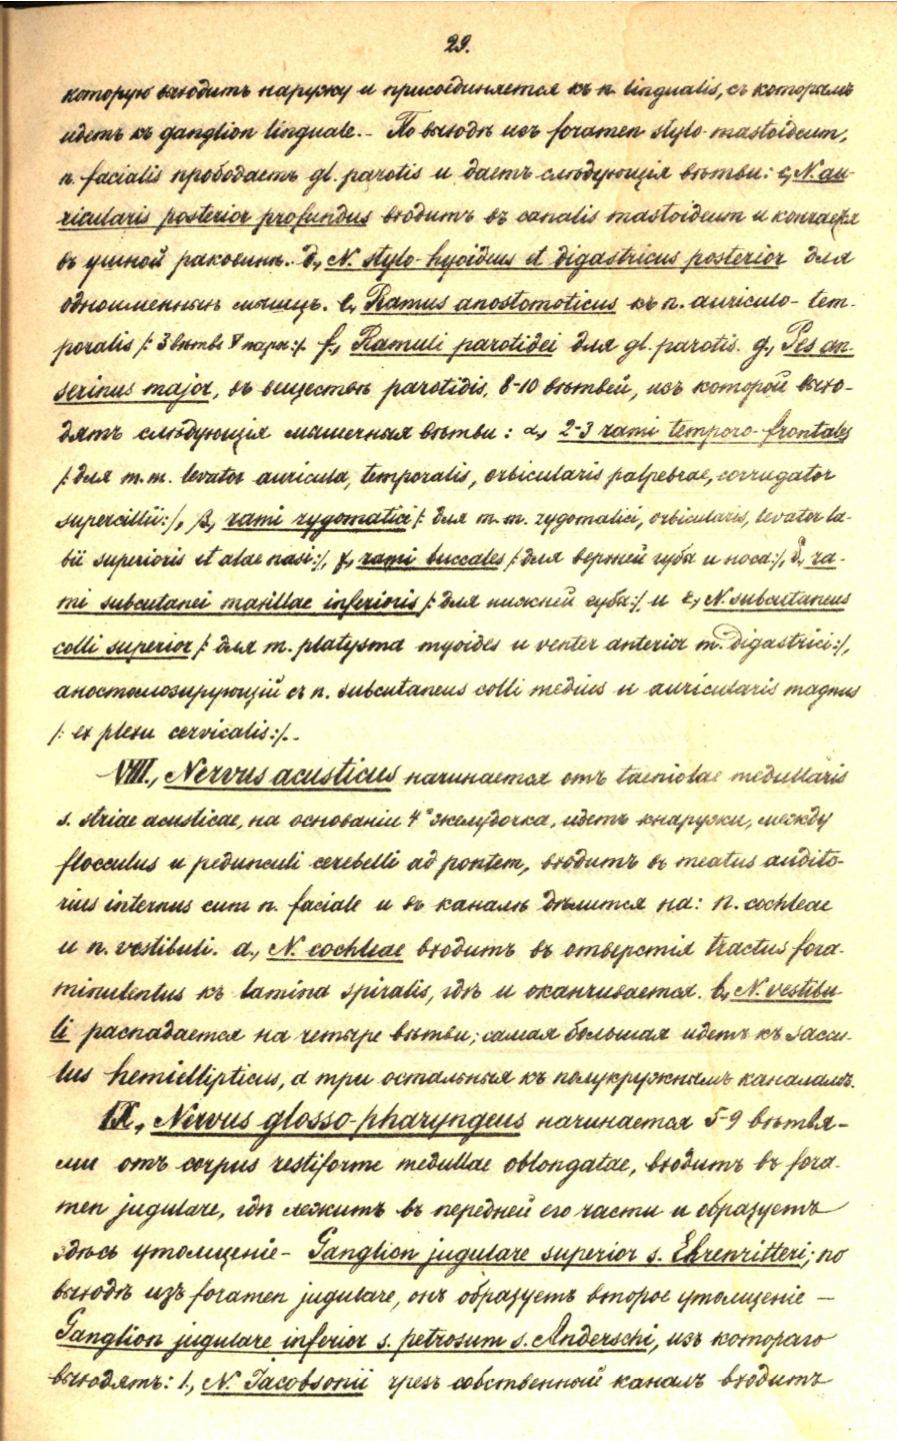 29.
которую выходитъ наружу и присоединяется къ n. lingualis, съ которымъ
идетъ къ ganglion linguale.- По выходѣ изъ foramen stylo-mastoideum,
n. facialis прободаетъ gl. parotis и даетъ слѣдующія вѣтви: c, N. au-
ricularis posterior profundus входитъ въ canalis mastoideum и кончается
въ ушной раковинѣ. d, N. stylo-hyoideus et digastricus posterior для
одноименныхъ мышцъ. e, Ramus anostomoticus къ n. auriculo-tem-
poralis /: 3 вѣтвь V пары :/. f., Ramuli parotidei для gl. parotis. g., Pes an-
serinus major, въ веществѣ parotidis, 8-10 вѣтвей, изъ которой выхо-
дятъ слѣдующія мышечныя вѣтви: α, 2-3 rami temporo-frontales
/: для m.m. levator auricula, temporalis, orbicularis palpebrae, corrugator
supercillii :/, β, rami zygomatici /: для m.m. zygomatici, orbicularis, levator la-
bii superioris et alae nasi :/, γ, rami buccales /: для верхней губы и носа :/, δ, ra-
mi subcutanei maxillae inferioris /: для нижней губы :/ и ε, N. subcutaneus
colli superior /: для m. platysma myoides и venter anterior m. digastrici :/,
аностомозирующій съ n. subcutaneus colli medius и auricularis magnus
/: ex plexu cervicalis :/.-
VIII., Nervus acusticus начинается отъ taeniolae medullaris
s. striae acusticae, на основаніи 4го желудочка, идетъ кнаружи, между
flocculus и pedunculi cerebelli ad pontem, входитъ въ meatus audito-
rius internus cum n. faciale и въ каналѣ дѣлится на: n. cochleae
и n. vestibuli. a., N. cochleae входитъ въ отверстія tractus fora-
minulintus къ lamina spiralis, гдѣ и оканчивается. b, N. vestibu-
li распадается на четыре вѣтви; самая большая идетъ къ saccu-
lus hemiellipticus, а три остальныя къ полукружнымъ каналамъ.
IX., Nervus glosso-pharyngeus начинается 5-9 вѣтвя-
ми отъ corpus restiforme medullae oblongatae, входитъ въ fora-
men jugulare, гдѣ лежитъ въ передней его части и образуетъ
здѣсь утолщеніе - Ganglion jugulare superior s. Ehrenritteri; по
выходѣ изъ foramen jugulare, онъ образуетъ второе утолщеніе —
Ganglion jugulare inferior s. petrosum s. Anderschi, изъ котораго
выходятъ: 1., N. Jacobsonii чрезъ собственный каналъ входитъ